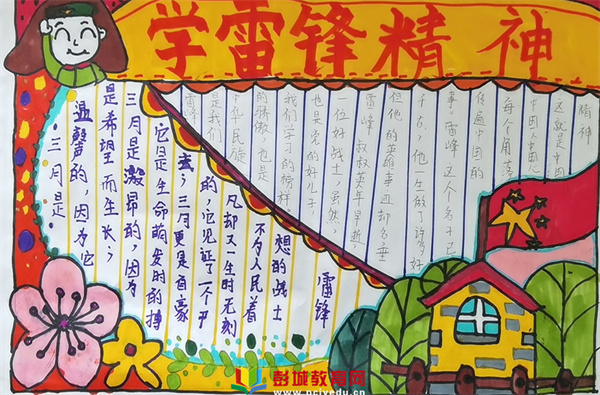 学雷锋精神
三月是
温馨的，因为它
是希望而生长；
三月是激昂的，因为
它是生命萌发时的搏
击；三月更是自豪
的，它见证了一个平
凡却又一生时无刻
不为人民着
想的战士
雷锋
雷锋
是我们
中华民族
的骄傲，也是
我们学习的榜样
也是党的好儿子，
一位好战士，虽然，
雷锋叔叔英年早逝，
但他的英雄事迹却名垂
千古，他一生做了许多好
事。雷锋这个名字已
传遍中国的
每个角落
中国人中国
这就是中国
精神
彭城教育网
www.pcjyedu.cn